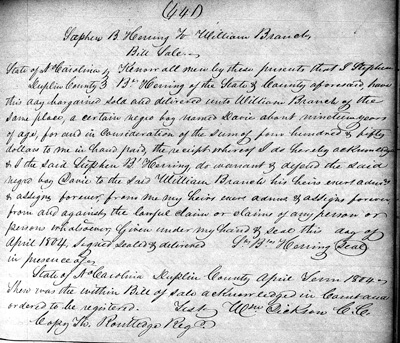 (441)
Stephen B Herring To William Branch
Bill Sale
State of No Carolina } Know all men by these presents that I Stephen
Duplin County } Bn Herring of the State & County aforesaid, have
this day bargained sold and delivered unto William Branch of the
same place, a certain negro boy named Davie about nineteen years
of age, for and in consideration of the Sum of four hundred & fifty
dollars to me in hand paid, the receipt whereof I do hereby acknowledge
& I the said Stephen Bn Herring do warrant & defend the said
negro boy Davie to the said William Branch his heirs exers admrs
& assigns forever from me my heirs exers admrs & assigns forever
from and against the lawful claim or claims of any person or
persons whatsoever Given under my hand & seal this day of
April 1804. Signed sealed & delivered Sn Bn Herring Seal
in presence of
State of No Carolina Duplin County April Term 1804.
Then was the within Bill of sale acknowledged in Court and
ordered to be registered. Test Wm Dickson C.C.
Copy Th. Routledge Regr